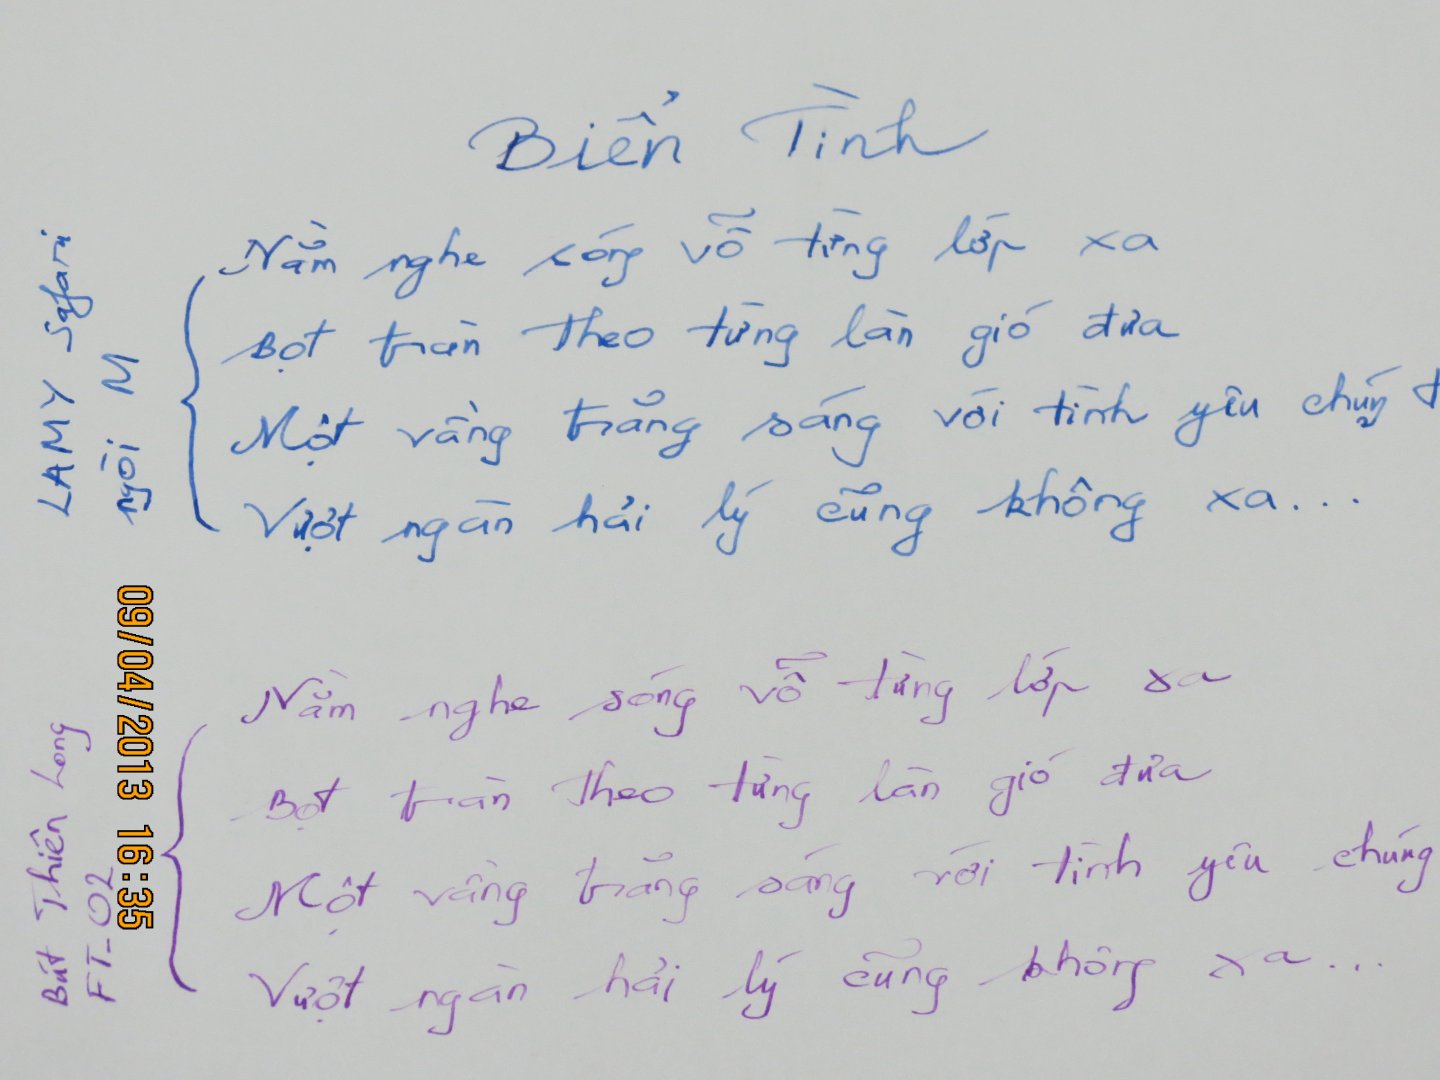 Biển Tình
LAMY Safari
ngòi M
Nằm nghe sóng vỗ từng lớp xa
Bọt tràn Theo từng làn gió đưa
Một vầng trăng sáng với tình yêu chúng t
Vượt ngàn hải lý cũng không xa...
09/04/2013 16:35
Bút Thiên Long
FT-02
Nằm nghe sóng vỗ từng lớp xa
Bọt tràn Theo từng làn gió đưa
Một vầng trăng sáng với tình yêu chúng
Vượt ngàn hải lý cũng không xa...